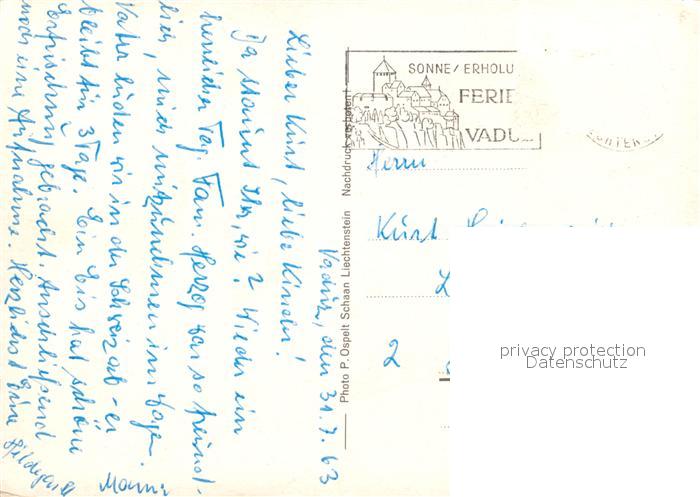 Vaduz, den 31.7.63
Lieber Kurt, liebe Kinder!
Da staunt Ihr, wie? Wieder ein
herrlicher Tag. Fam. Herzog war so freund-
lich, mich mitzunehmen im Wagen.
Vater luden wir in der Schweiz ab - er
bleibt ein 3 Tage. Ein Eis hat schöne
Erfrischung gebracht. Anschließend
noch eine Aufnahme. Herzlichst Eure
Hildegard
Mama
Photo P. Ospelt Schaan Liechtenstein Nachdruck verboten
SONNE/ERHOLU
FERIE
VADU
Herrn
Kurt
2
privacy protection
Datenschutz